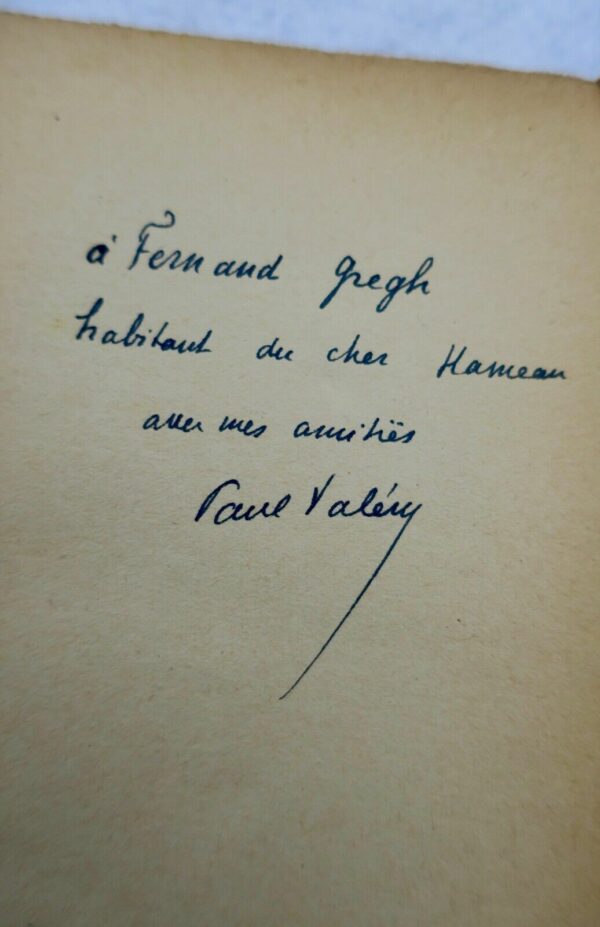 à Fernand Gregh
habitant du cher Hameau
avec mes amitiés
Paul Valéry